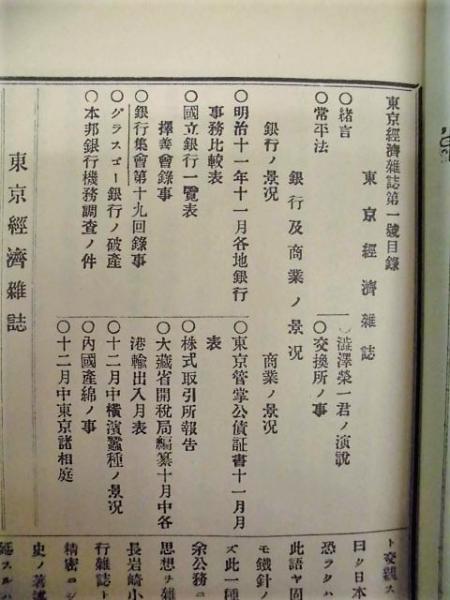 東京經濟雜誌第一號目錄
東京經濟雜誌
○緒言
○澁澤榮一君ノ演說
○常平法
○交換所ノ事
銀行及商業ノ景況
銀行ノ景况
商業ノ景况
○明治十一年十一月各地銀行
事務比較表
○國立銀行一覽表
擇善會錄事
○銀行集會第十九回錄事
○グラスゴー銀行ノ破產
○本邦銀行機務調查ノ件
○東京管掌公債証書十一月月
表
○株式取引所報告
○大藏省關稅局編纂十月中各
港輸出入月表
○十二月中橫濱蠶種ノ景况
○內國產綿ノ事
○十二月中東京諸相庭
東京經濟雜誌
ト交親ス
曰ク日本
恐ラクハ
此語ヤ固
モ鐵針ノ
ズ此一種
余公務ニ
思想ヲ雜
長岩崎小
行雜誌ト
精密ニシ
史ノ著述